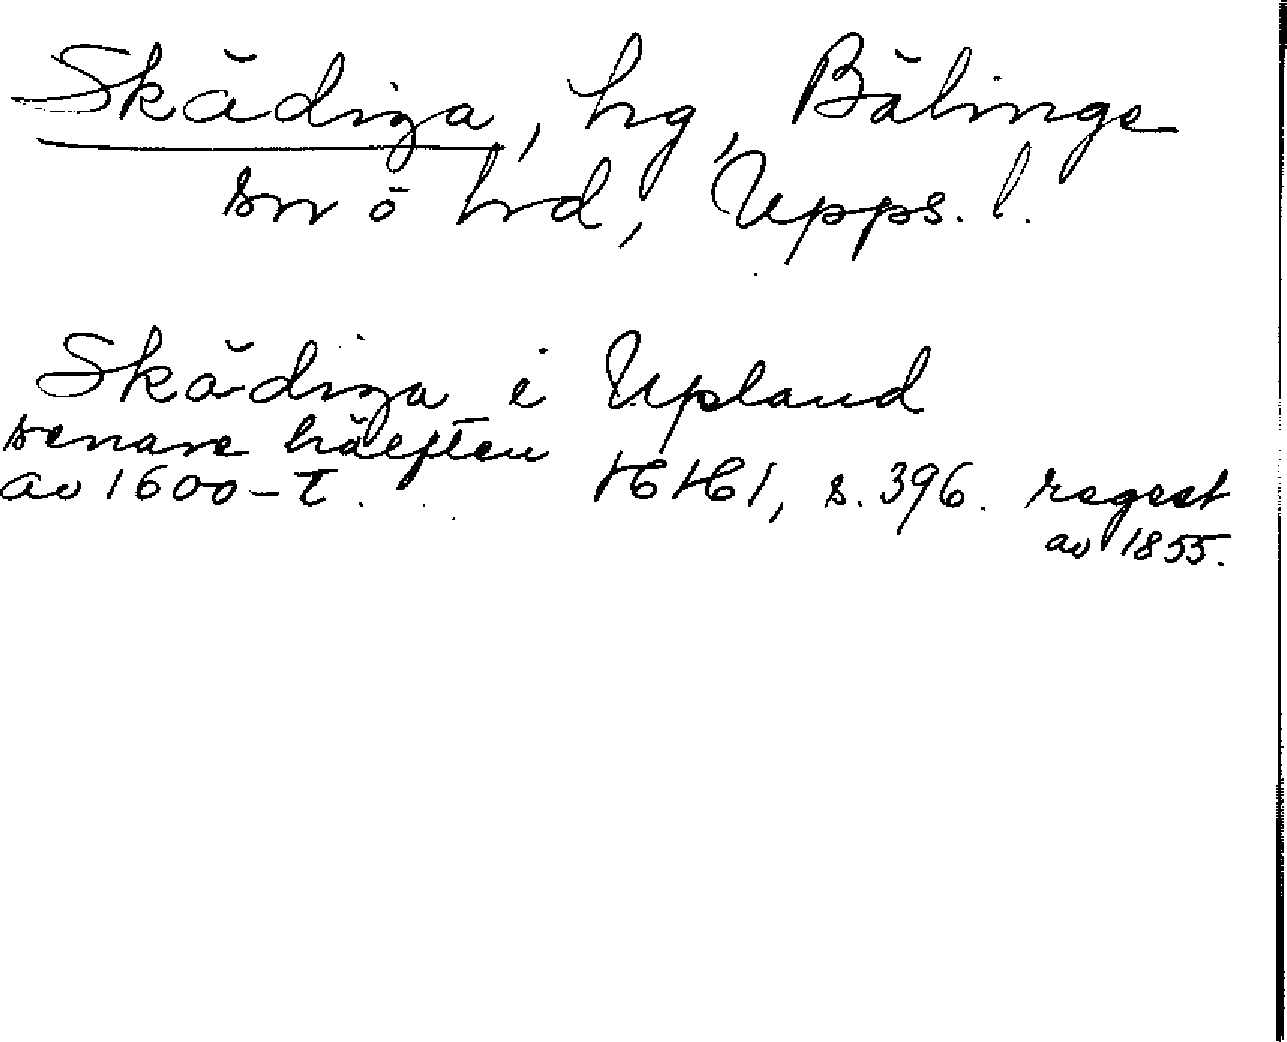 Skädiga, hg, Bälinge
sn o hd, Upps. l.
Skädiga i Upland
senare hälften
av 1600-t. HH1, s. 396. regest
av 1855.